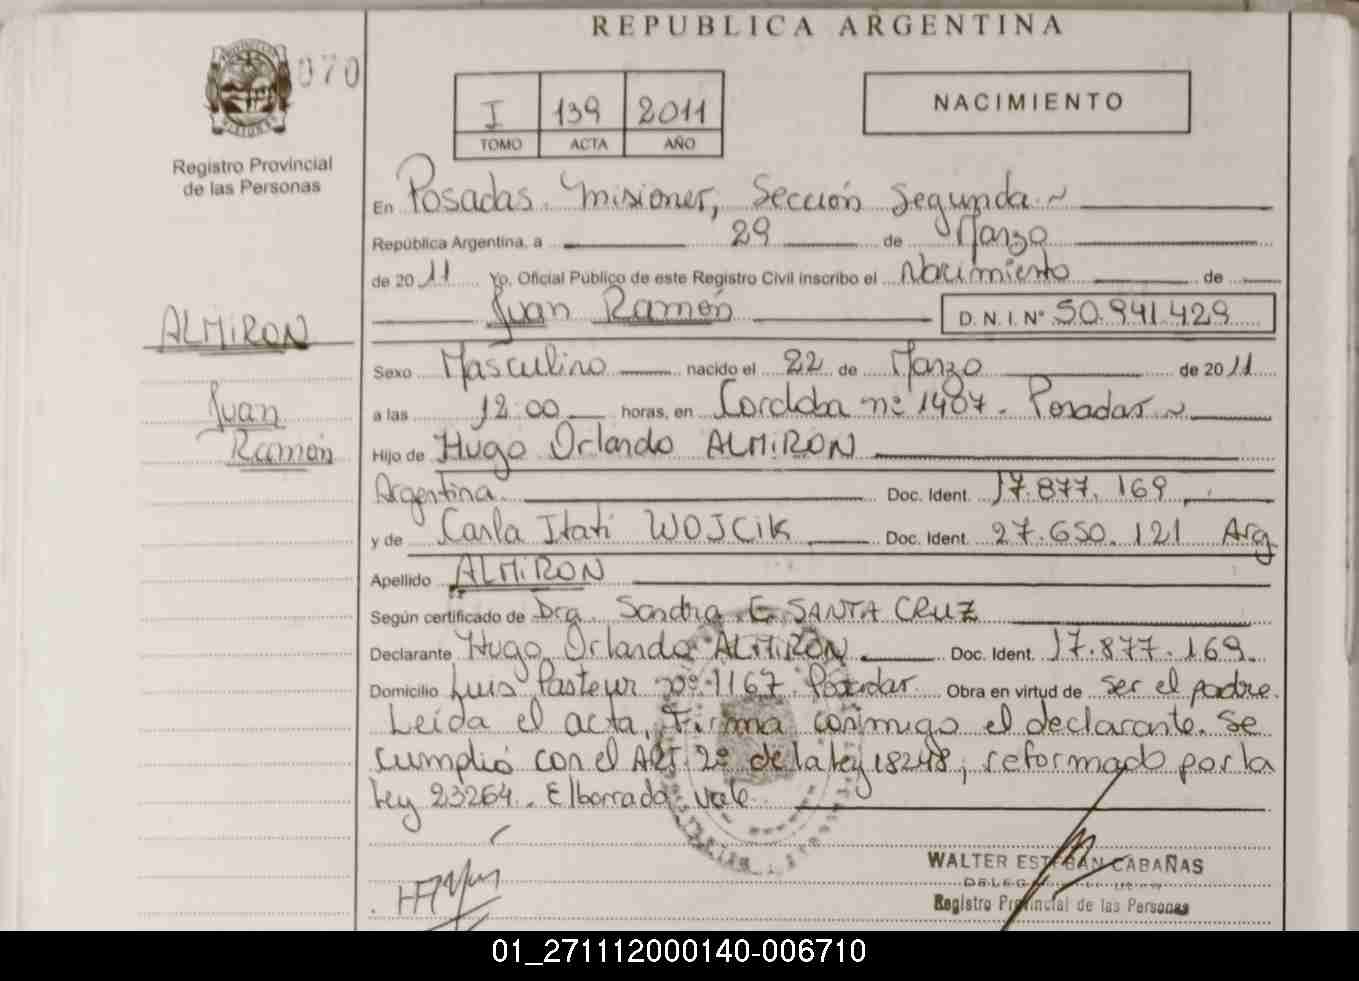 REPUBLICA ARGENTINA
070
I 139 2011
TOMO ACTA AÑO
NACIMIENTO
Registro Provincial
de las Personas
En Posadas. Misiones, Sección Segunda
República Argentina, a 29 de Marzo
de 2011 Yo, Oficial Público de este Registro Civil inscribo el Nacimiento de
Juan Ramón D.N.I. Nº 50.941.429
ALMIRON
Juan
Ramón
Sexo Masculino nacido el 22 de Marzo de 2011
a las 12.00 horas, en Cordoba nº 1407. Posadas
Hijo de Hugo Orlando ALMIRON
Argentina. Doc. Ident. 17.877.169
y de Carla Itatí WOJCIK Doc. Ident. 27.650.121 Arg
Apellido ALMIRON
Según certificado de Dra. Sandra E. SANTA CRUZ
Declarante Hugo Orlando ALMIRON Doc. Ident. 17.877.169.
Domicilio Luis Pasteur nº 1167. Posadas. Obra en virtud de ser el padre.
Leída el acta, Firma conmigo el declarante. Se
cumplió con el Art. 2º de la Ley 18248, reformado por la
Ley 23264. El borrado vale
WALTER ESTEBAN CABAÑAS
Registro Provincial de las Personas
01_271112000140-006710